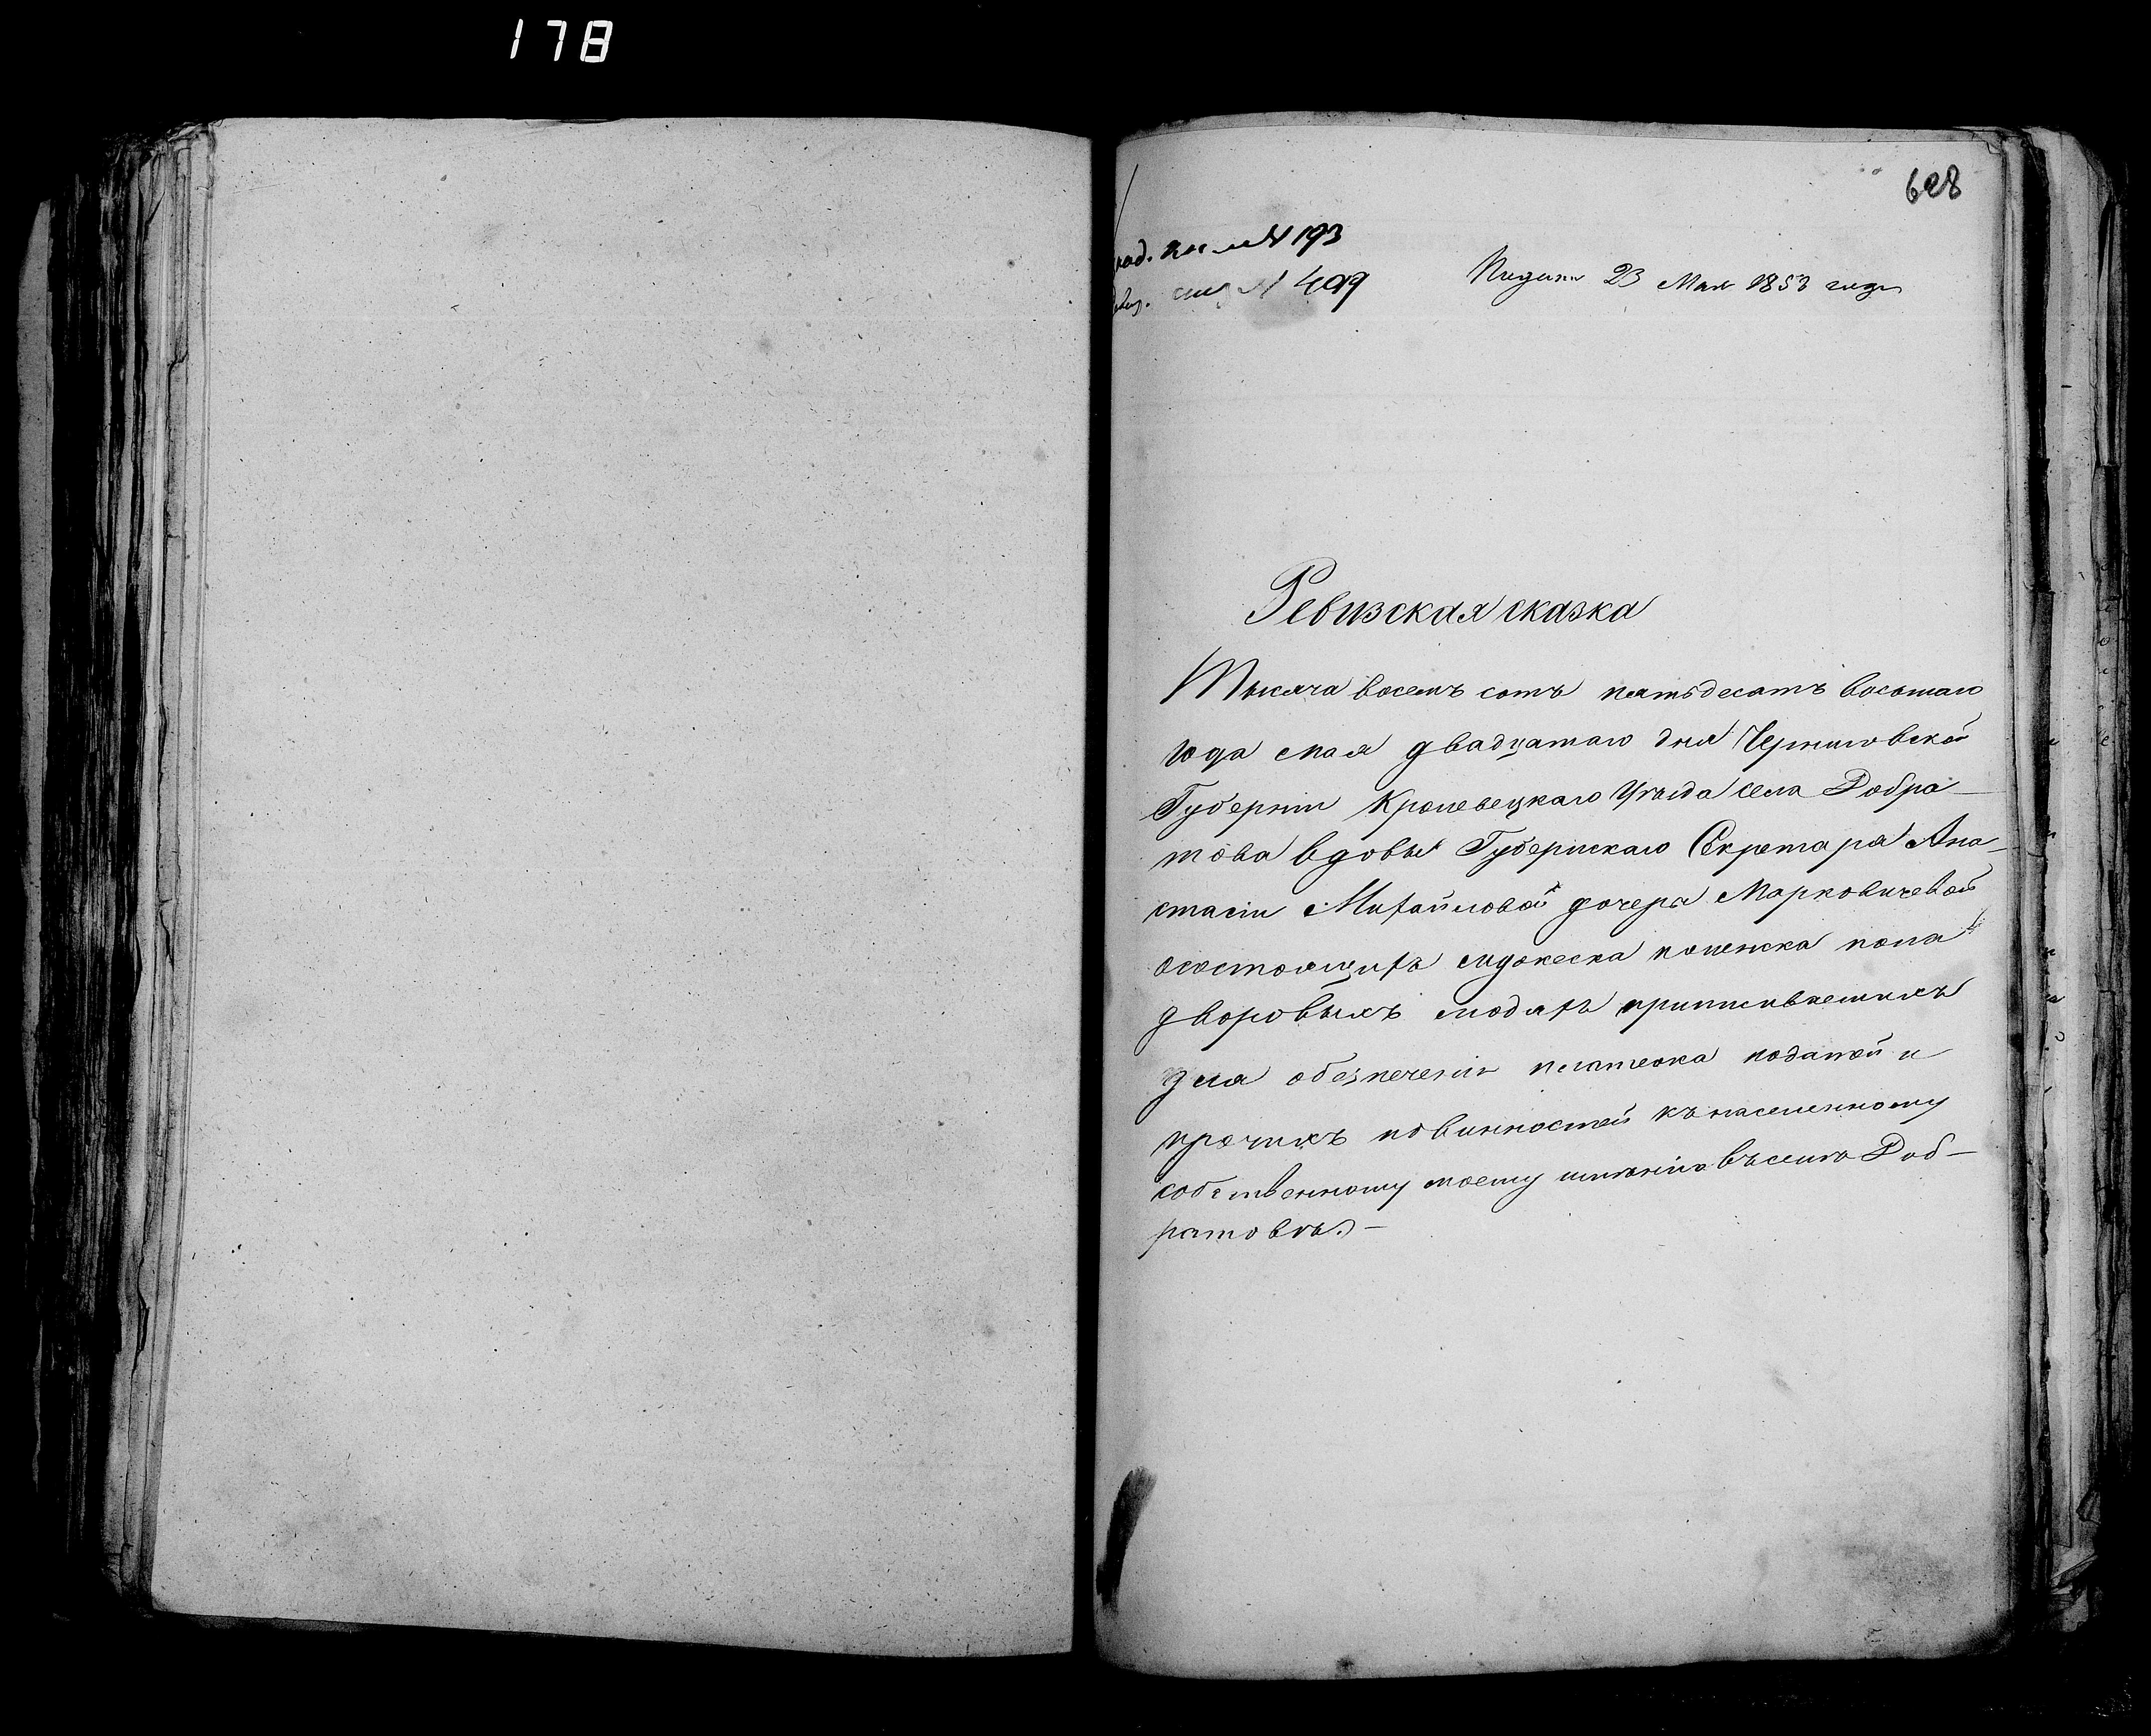 178
628
№ 193
№ 499
Подана 23 Мая 1858 года
Ревизская сказка
Тысяча восемъ сотъ пятьдесятъ восьмаго
года мая двадцатаго дня Черниговской
Губерніи Кролевецкаго Уѣзда села Добра–
това вдовы Губернскаго Секретаря Ана–
стасіи Михайловой дочери Марковичевой
осостоящихъ мужеска иженска пола
дворовыхъ людяхъ приписываемыхъ
для обезпеченія платежа податей и
прочихъ повинностей кънаселенному
собственному моему имѣнію въселѣ Доб–
ратовѣ. –